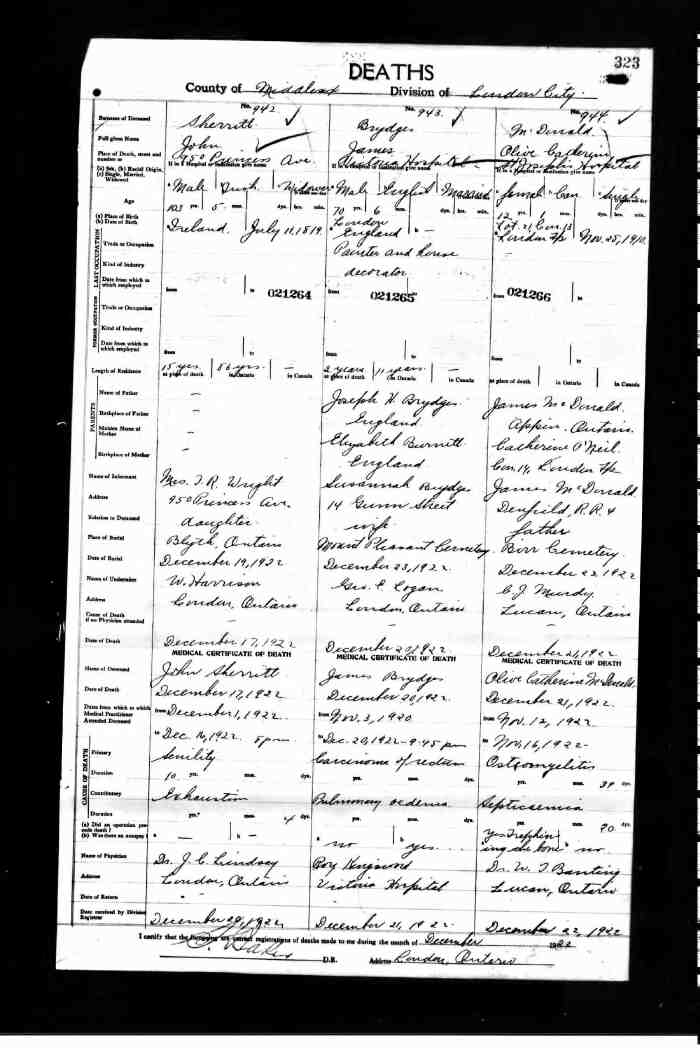 323
DEATHS
County of Middlesex Division of London City.
No. 942 No. 943. No. 944.
Surname of Deceased Sherritt Brydges McDonald
Full given Name John James Olive Catherine
Place of Death, street and number or 950 Princess Ave. Hospital St Joseph's Hospital
If in a Hospital or Institution give name
(a) Sex, (b) Racial Origin, (c) Single, Married, Widowed Male Irish Widower Male English Married Female Can Single
Age 103 yrs. 5 mos. dys. hrs. min. 70 yrs. 6 mos. dys. hrs. min. 12 yrs. mos. dys. hrs. min.
(a) Place of Birth
(b) Date of Birth Ireland. July 11, 1819. London England — Lot 21 Con. 13 London Tp Nov. 25, 1910.
LAST OCCUPATION
Trade or Occupation Painter and house —
Kind of Industry decorator
Date from which to which employed from to from to from to
021264 021265 021266
FORMER OCCUPATION
Trade or Occupation
Kind of Industry
Date from which to which employed from to from to from to
Length of Residence 15 yrs. 56 yrs. — 2 years 11 years. —
at place of death in Ontario in Canada at place of death in Ontario in Canada at place of death in Ontario in Canada
PARENTS
Name of Father — Joseph H Brydges James McDonald.
Birthplace of Father — England Appin. Ontario.
Maiden Name of Mother — Elizabeth Burnett Catherine O'Neil.
Birthplace of Mother — England Con. 14, London Tp
Name of Informant Mrs. T. R. Wright Susannah Brydges James McDonald
Address 950 Princess Av. 14 Gunn Street Denfield, R.R. 4
Relation to Deceased daughter wife father
Place of Burial Blyth, Ontario Mount Pleasant Cemetery. Birr Cemetery.
Date of Burial December 19, 1922 December 23, 1922. December 23, 1922
Name of Undertaker W. Harrison Geo. E. Logan C. J. Murdy.
Address London, Ontario London, Ontario Lucan, Ontario
Cause of Death if no Physician attended — — —
Date of Death December 17, 1922 December 20, 1922 December 21, 1922
MEDICAL CERTIFICATE OF DEATH MEDICAL CERTIFICATE OF DEATH MEDICAL CERTIFICATE OF DEATH
Name of Deceased John Sherritt James Brydges Olive Catherine McDonald.
Date of Death December 17, 1922 December 20, 1922 December 21, 1922.
Dates from which to which Medical Practitioner Attended Deceased from December 1, 1922 from Nov. 3, 1920 from Nov. 12, 1922
to Dec. 16, 1922. 5 pm. to Dec. 20, 1922 - 9.45 pm to Nov. 16, 1922-
CAUSE OF DEATH
Primary Senility Carcinoma of rectum Osteomyelitis
Duration 10 yrs. mos. dys. yrs. mos. dys. yrs. mos. 39 dys.
Contributory Exhaustion Pulmonary oedema Septicaemia
Duration yrs. mos. 4 dys. yrs. mos. dys.
(a) Did an operation precede death?
(b) Was there an autopsy? — — no yes. yes Trephining the bone no
Name of Physician Dr. J. C. Lindsay Roy Dr. W. T. Banting
Address London, Ontario Victoria Hospital Lucan, Ontario
Date of Return
Date received by Division Registrar December 20, 1922 December 21, 1922 December 22, 1922
I certify that the foregoing are correct registrations of deaths made to me during the month of December 1922
D.R. Address London, Ontario